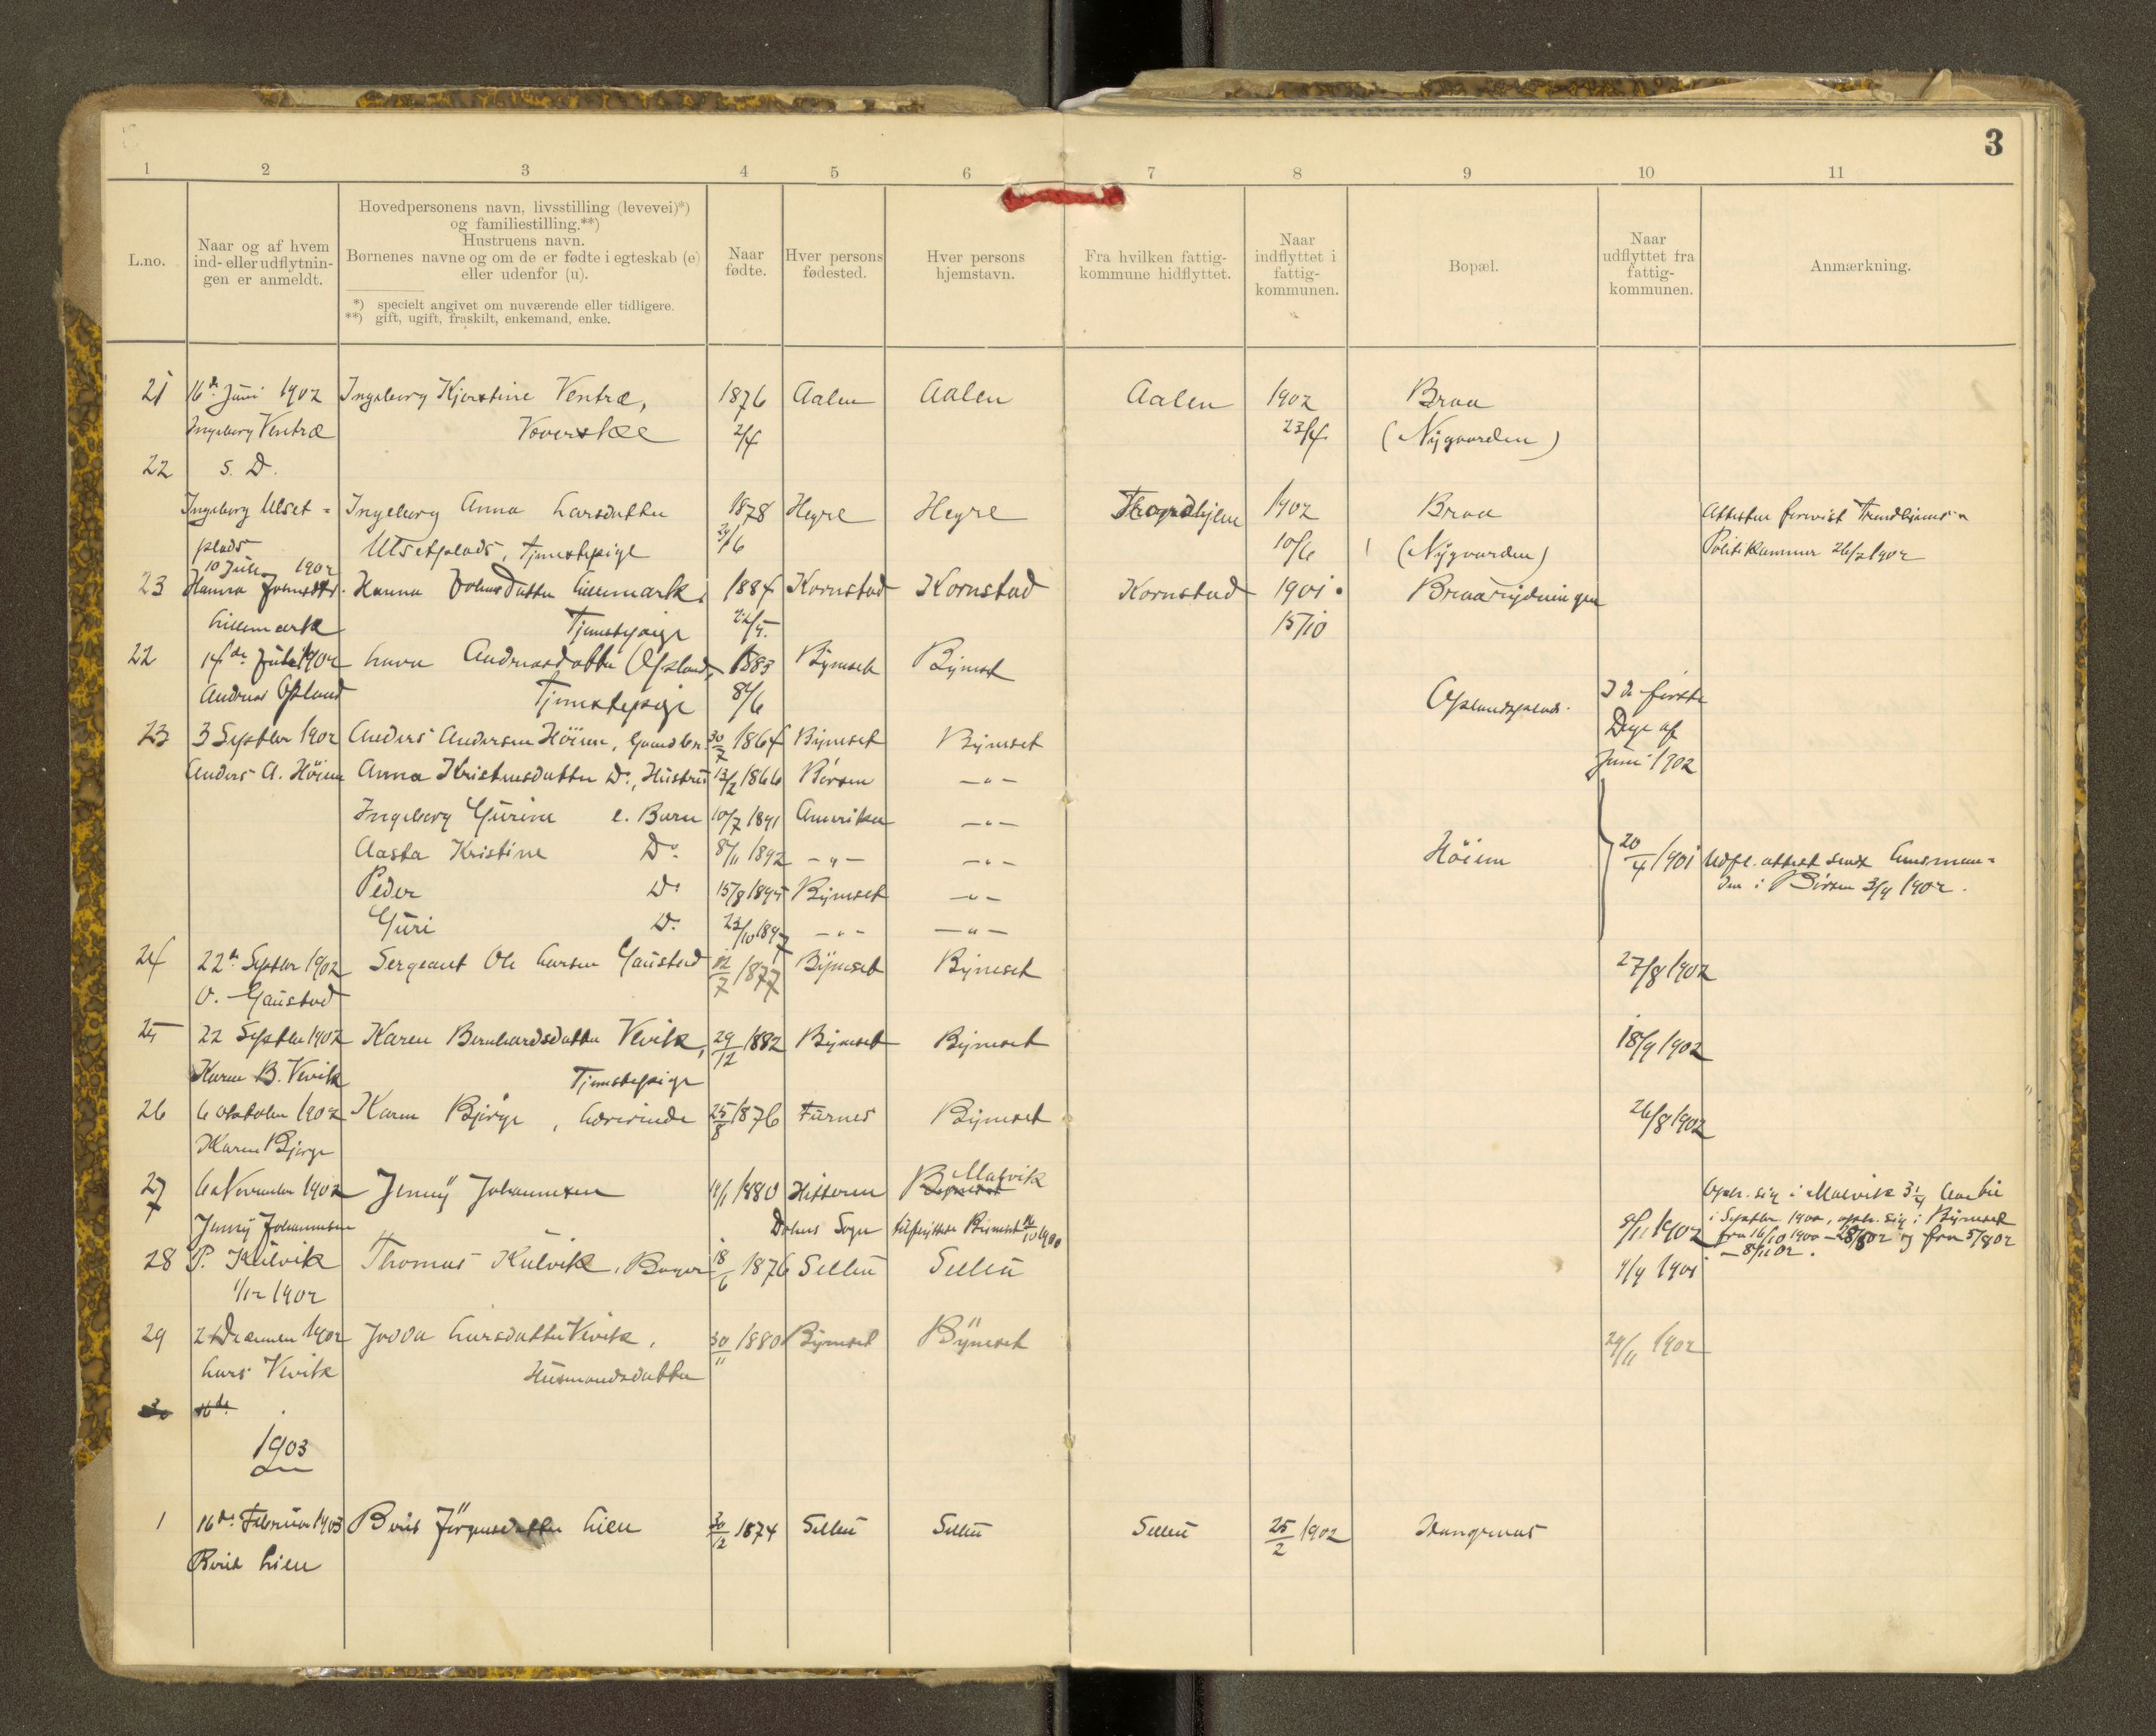 3
1 2 3 4 5 6 7 8 9 10 11
L.no.
Naar og af hvem
ind- eller udflytnin-
gen er anmeldt.
Hovedpersonens navn, livsstilling (levevei)*)
og familiestilling.**)
Hustruens navn.
Børnenes navne og om de er fødte i egteskab (e)
eller udenfor (u).
*) specielt angivet om nuværende eller tidligere.
**) gift, ugift, fraskilt, enkemand, enke.
Naar
fødte.
Hver persons
fødested.
Hver persons
hjemstavn.
Fra hvilken fattig-
kommune hidflyttet.
Naar
indflyttet i
fattig-
kommunen.
Bopæl.
Naar
udflyttet fra
fattig-
kommunen.
Anmærkning.
21 16de Juni 1902 Ingeborg Kjerstine Ventræ, 1876 Aalen Aalen Aalen 1902 Braa
Ingeborg Ventræ 2/4 23/4 (Nygaarden)
22 s. D.
Ingeborg Ulset= Ingeborg Anna Larsdatter 1878 Hegre Hegre Trondhjem 1902 Braa Attesten forevist Trondhjems
plads Ulsetplads, Tjenestepige 10/6 (Nygaarden) Politikammer 26/2 1902
10 Juli 1902
23 Hanna Johnsdtr. Hanna Johnsdatter Liemark, 1884 Kornstad Kornstad Kornstad 1901 Braarydningen
Tjenestepige 15/10
22 14de Juli 1902 Andreasdatter Opland, 1883 Bynesset Bynesset
Andreas Opland Tjenestepige 8/6 Oplandsplads. I de første
Dage af
Juni 1902
23 3 Septbr 1902 Anders Andersen Höiem, 30/7 1864 Bynesset Bynesset
Anders A. Höiem Anna Kristensdatter Do, Hustru 13/2 1866 Børsen —"—
Ingeborg Gurine e. Barn 10/7 1891 Amerika —"—
Aasta Kristine Do 8/11 1892 —"— —"— Höiem 20/4 1901 Udfl. attest sendt Lensman=
Peder Do 15/8 1895 Bynesset —"— den i Börsen 3/9 1902.
Guri Do 23/10 1897 —"— —"—
24 22de Septbr 1902 Sergeant Ole Larsen Gaustad 12/7 1877 Bynesset Bynesset 27/8 1902
O. Gaustad
25 22 Septbr 1902 Karen Bernhardsdatter Vevik, 29/12 1882 Bynesset Bynesset 18/9 1902
Karen B. Vevik Tjenestepige
26 6 Oktober 1902 Karen Bjørge, Lærerinde 25/8 1876 Furnes Bynesset 26/8 1902
Karen Bjørge
27 6 November 1902 Jenny Johannesen 1880 Hitteren Bynesset Malvik Oph. sig i Malvik
Jenny Johannesen Dolms Sogn tilflyttet Bynesset 16/10 1900 8/11 1902 i Septbr 1900, oph. sig i Bynesset
fra 16/10 1900 og fra 5/8 02
— 8/11 02.
28 P. Kulvik Thomas Kulvik, Bager 18/6 1876 Selbu Selbu 4/9 1901
1/12 1902
29 2 December 1902 Larsdatter Vevik, 30/11 1880 Bynesset Bynesset 29/11 1902
Lars Vevik Husmandsdatter
30 16de
1903
1 16de Februar 1903 Berit Jörgensdatter Lien 30/12 1874 Selbu Selbu Selbu 25/2 1902
Berit Lien